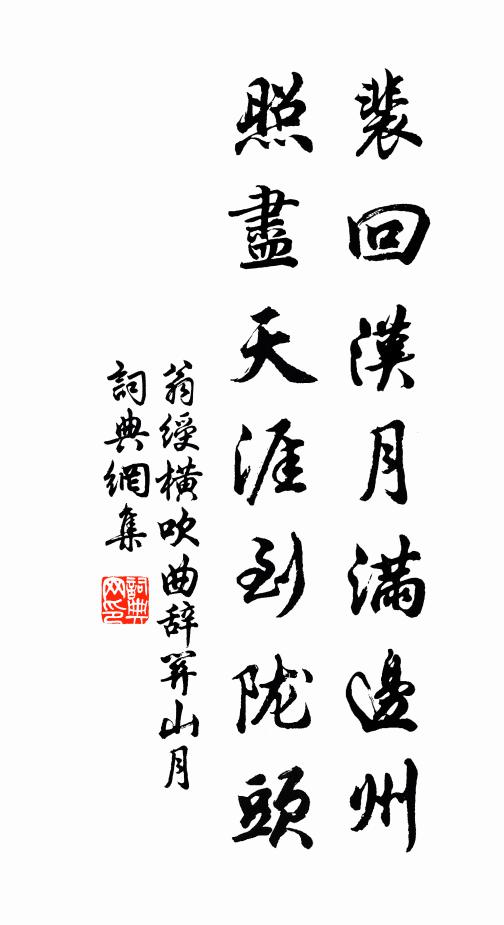 裴回漢月滿邊州
照盡天涯到陇頭
翁綬橫吹曲辞関山月
詞典網集
詞典
网印